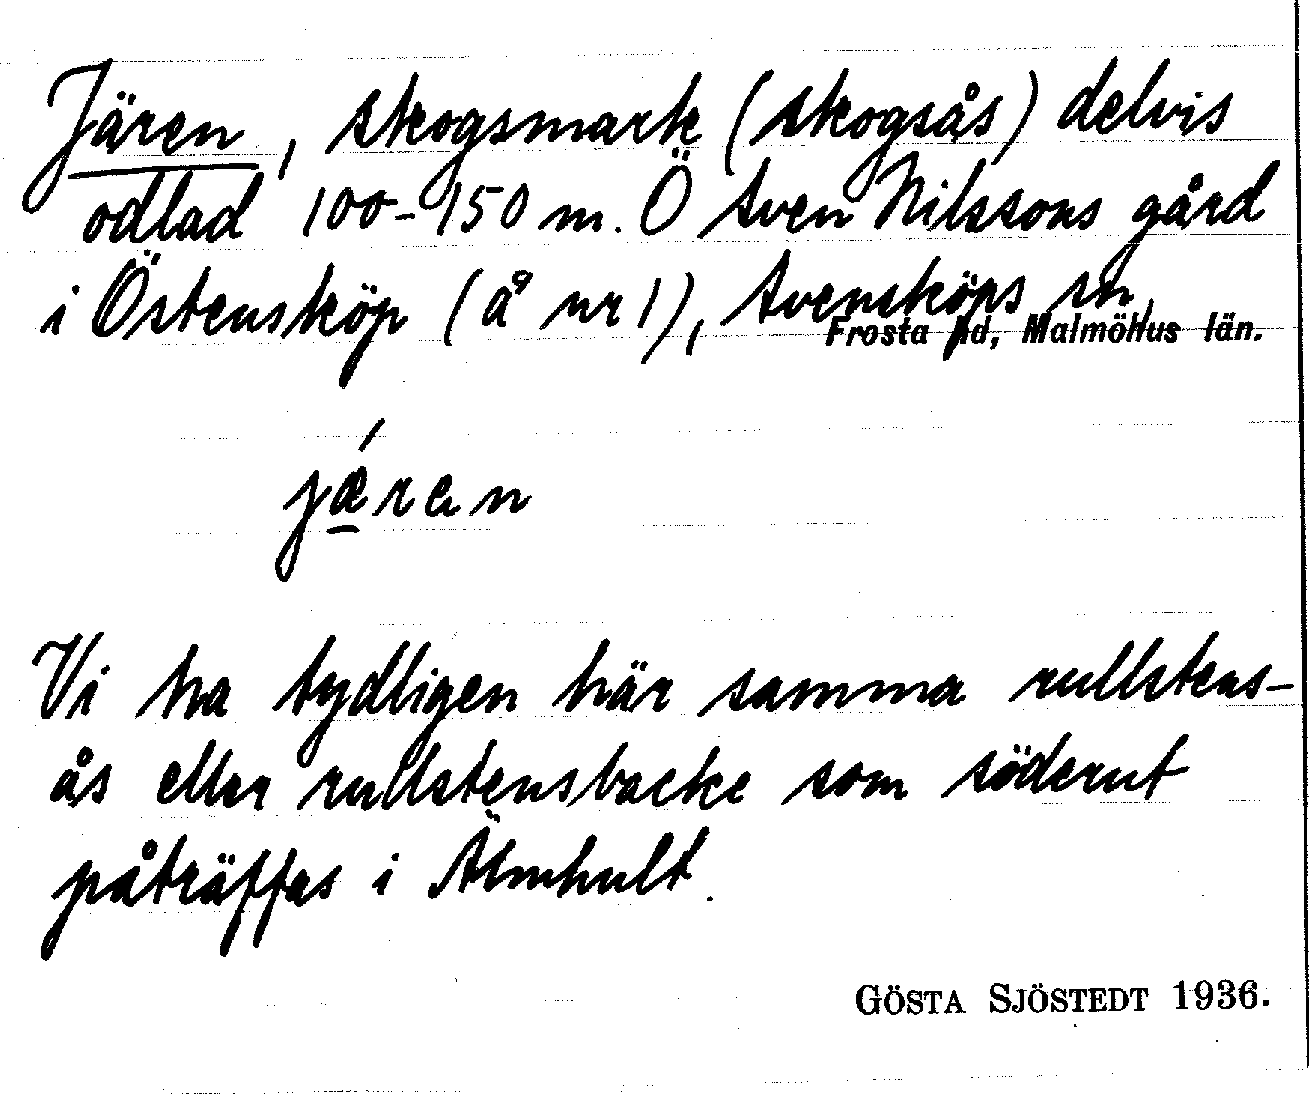 Jären, skogsmark (skogsås) delvis
odlad 100-150 m. Ö Sven Nilssons gård
i Östensköp (å nr 1), Svensköps sn,
Frosta hd, Malmöhus län.
jǽran
Vi ha tydligen här samma rullstens-
ås eller rullstensbacke som söderut
påträffas i Älmhult.
GÖSTA SJÖSTEDT 1936.